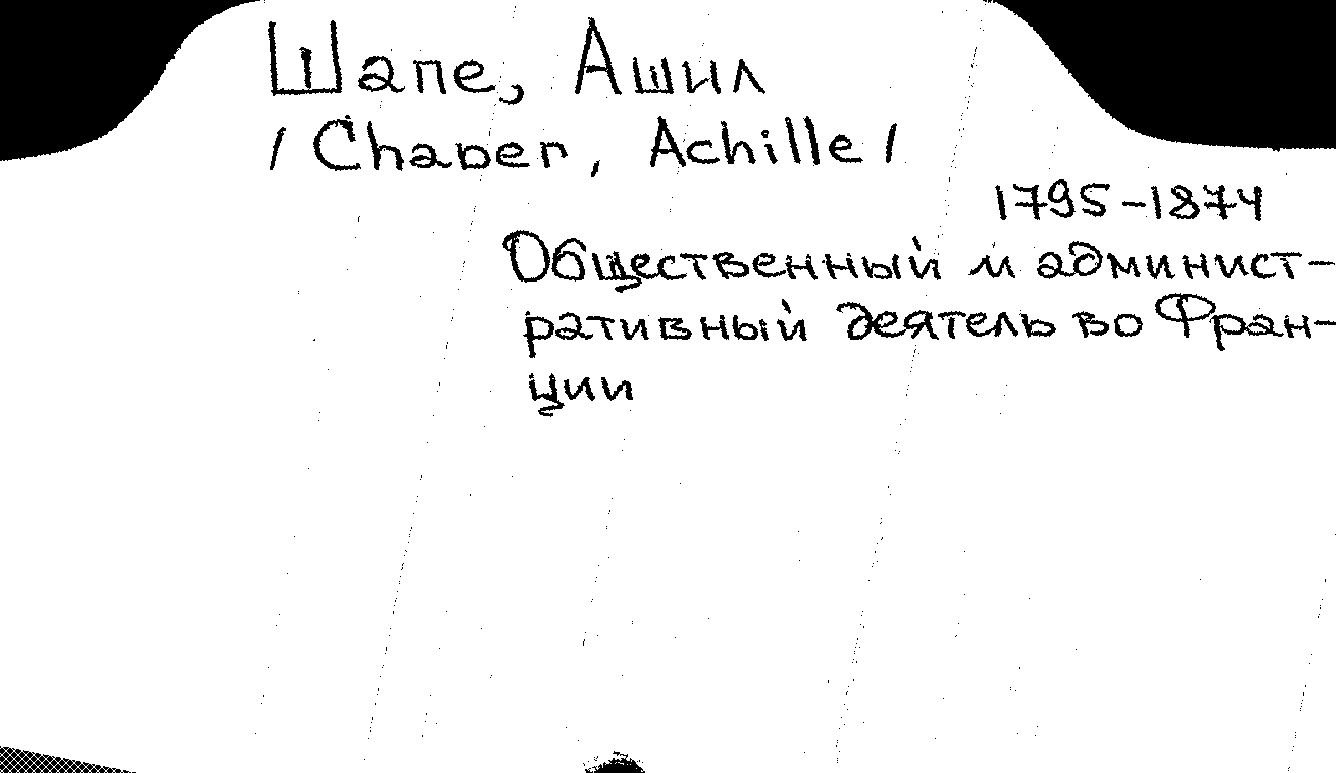 Шапе, Ашил
/ Chaper, Achille /
1795-1874
Общественный и админист-
ративный деятель во Фран-
ции